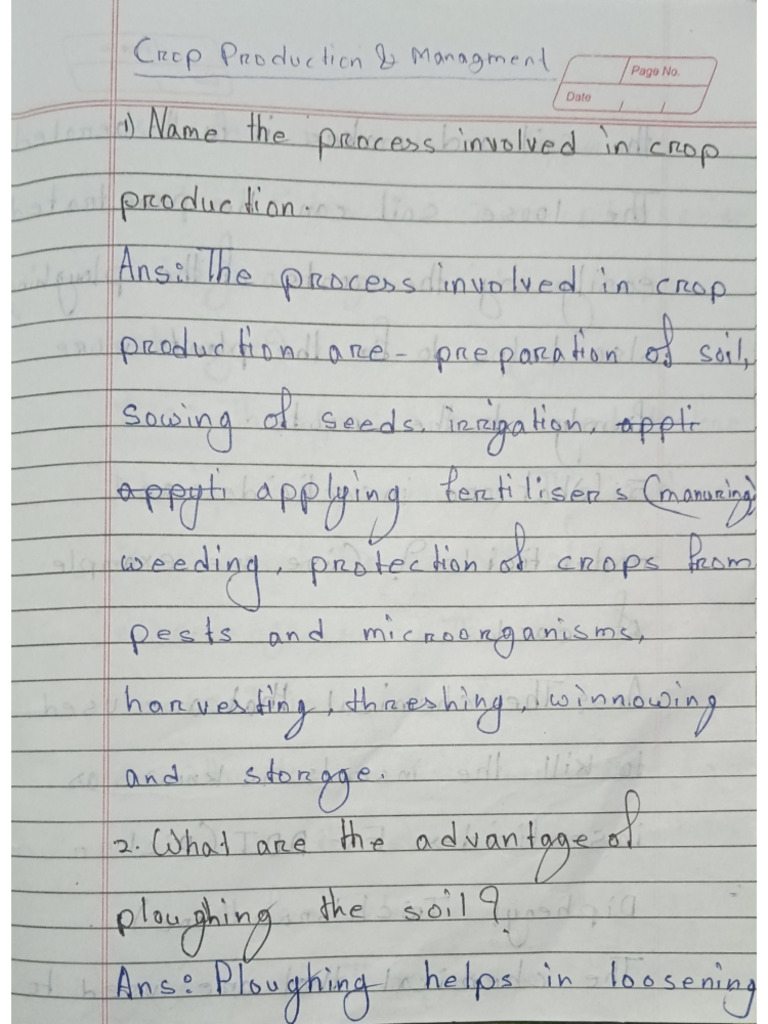 Crop Production & Managment
Page No.
Date / /
1) Name the process involved in crop
production.
Ans: The process involved in crop
production are - preparation of soil,
sowing of seeds, irrigation, appli
appyti applying fertilisers (manuring)
weeding, protection of crops from
pests and microorganisms,
harvesting, threshing, winnowing
and storage.
2. What are the advantage of
ploughing the soil?
Ans: Ploughing helps in loosening